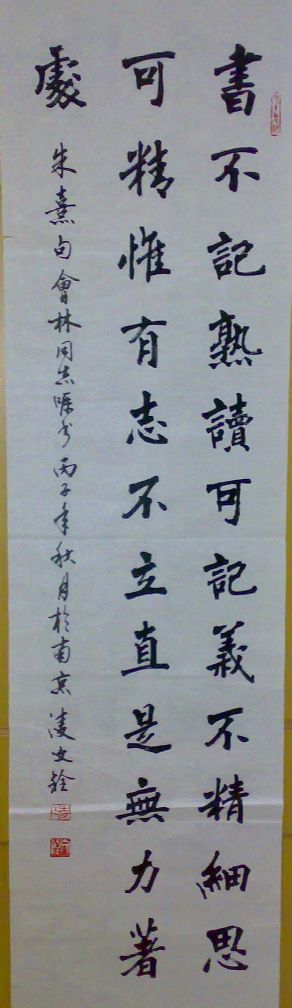 書不記熟讀可記義不精細思
可精惟有志不立直是無力著
處
朱熹句會林同志嘱书丙子年秋月於南京凌文銓